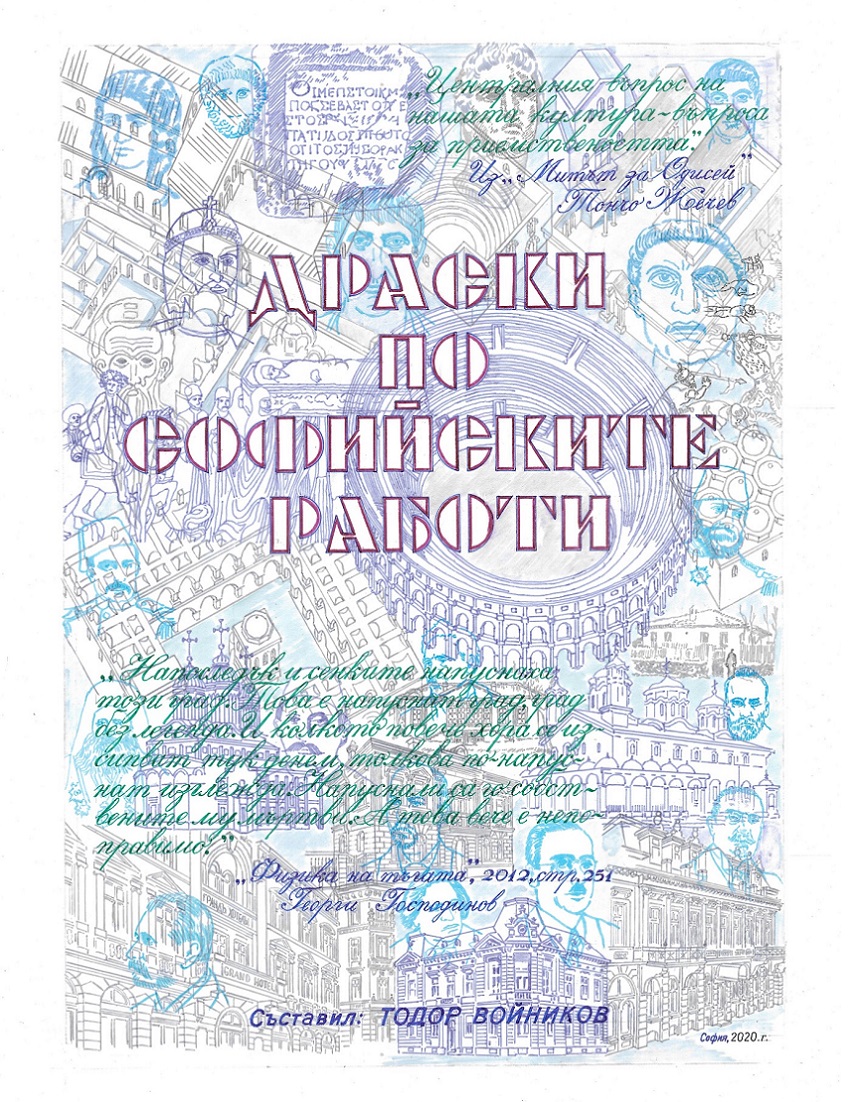 „Централния въпрос на
нашата култура-въпроса
за приемствеността".
Из „Митът за Одисей"
Тончо Жечев
ДРАСКИ
ПО
СОФИЙСКИТЕ
РАБОТИ
„Напоследък и сенките напуснаха
този град. Това е напуснат град, град
без легенда. И колкото повече хора се из-
сипват тук денем, толкова по-напус-
нат изглежда. Напуснали са го собст-
вените му мъртви. А това вече е непо-
правимо."
„Физика на тъгата", 2012, стр, 251
Георги Господинов
GRAND HOTEL
Съставил: ТОДОР ВОЙНИКОВ
София, 2020.г.